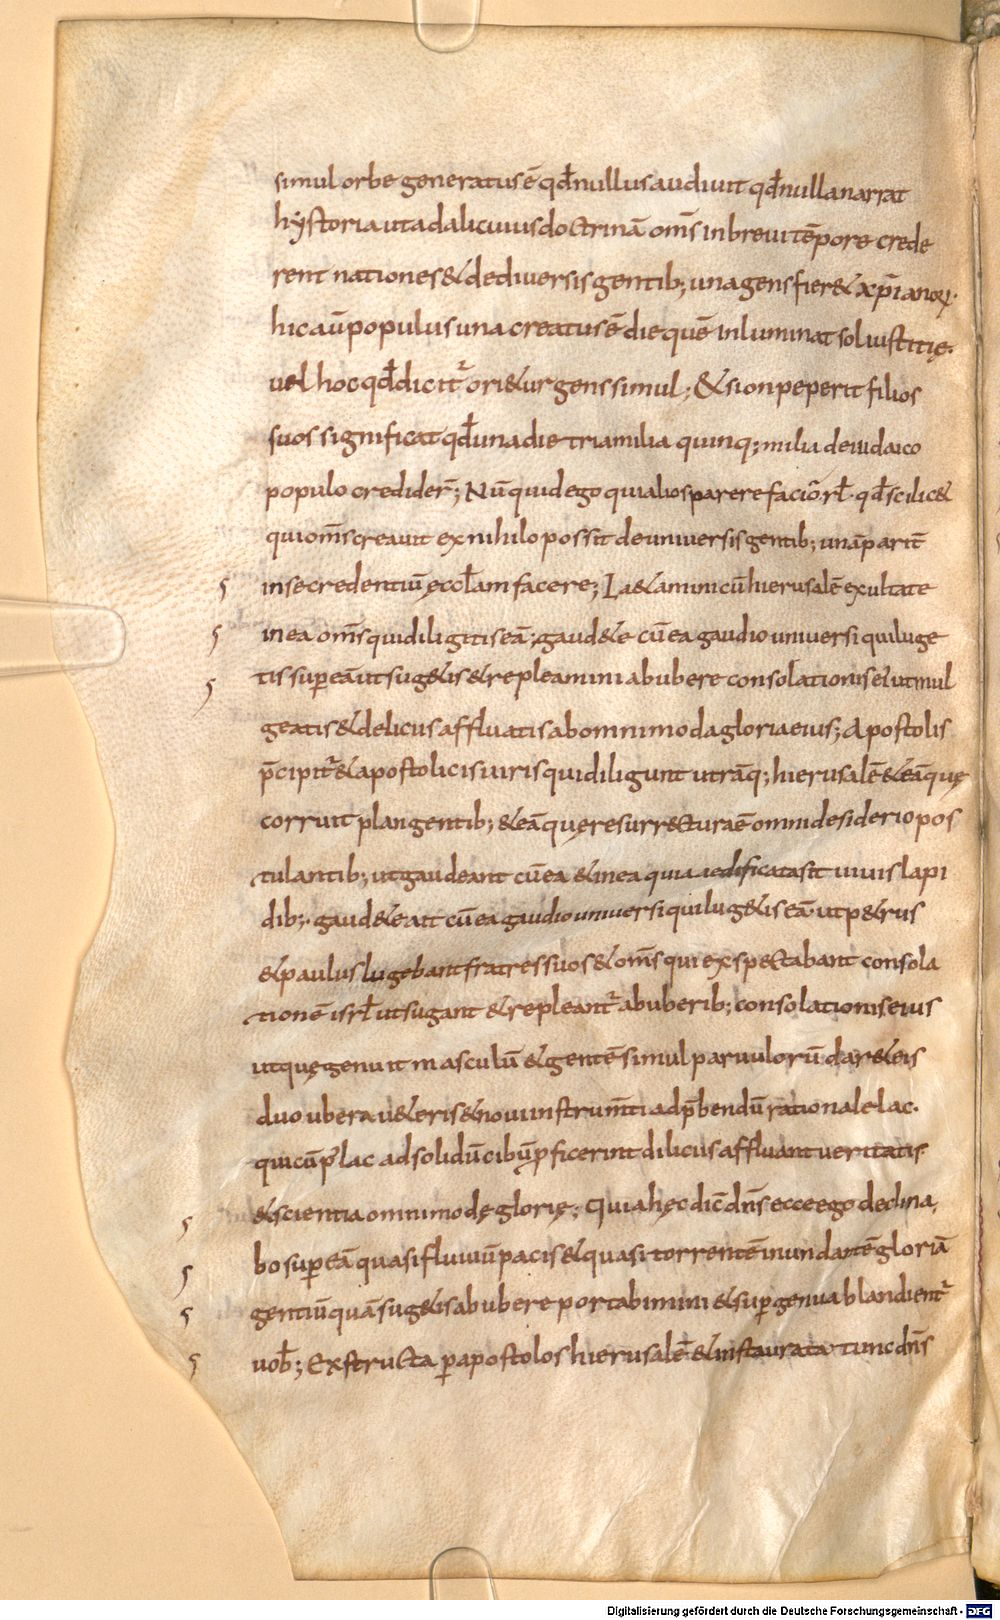 simul orbe generatus ē qđ nullus audiuit qđ nulla narrat
hẏstoria ut ad alicuius doctrinā om̄s in breui tēpore crede
rent nationes & de diuersis gentib; una gens fier& xp̄ianoꝝ.
hic aū populus una creatus ē die quē inluminat sol iustitię.
uel hoc qđ dicit᷑ ori&ur gens simul; & sion peperit filios
suos significat qđ una die tria milia quinq; milia de iudaico
populo credider̄; Nūquid ego qui alios parere facio .rł. qđ scilic&
qui om̄s creauit ex nihilo possit de uniuersis gentib; unā parit̄
in se credentiū ęccłam facere; La&amini cū hierusalē exultate
in ea om̄s qui diligitis eā; gaud&e cū ea gaudio uniuersi qui luge
tis sup̱ eā ut sug&is & repleamini ab ubere consolationis ei᷑ ut mul
geatis & deliciis affluatis ab omnimoda gloria eius; Apostolis
p̄cipit᷑ & apostolicis uiris qui diligunt utrāq; hierusalē & eā quę
corruit plangentib; & eā quę resurrectura ē omni desiderio pos
tulantib; ut gaudeant cū ea & in ea quia aedificata sit uiuis lapi
dib;. gaud&e ait cū ea gaudio uniuersi qui lug&is eā. ut p&rus
& paulus lugebant fratres suos & om̄s qui exspectabant consola
tionē isrł ut sugant & repleant᷑ ab uberib; consolationis eius
ut quę genuit masculū & gentē simul paruulorū dar& eis
duo ubera u&eris & noui instrum̄ti ad p̄bendū rationale lac.
qui cū p̱ lac ad solidū cibū ꝓficerint diliciis affluant ueritatis
& scientia omnimodę glorię; Quia hęc dic̄ dn̄s ecce ego declina,
bo sup̱ eā quasi fluuiū pacis & quasi torrentē inundantē gloriā
gentiū quā sug&is ab ubere portabimini & sup̱ genua blandient᷑
uob̄; Exstructa p̱ apostolos hierusalē & instaurata tunc dn̄s